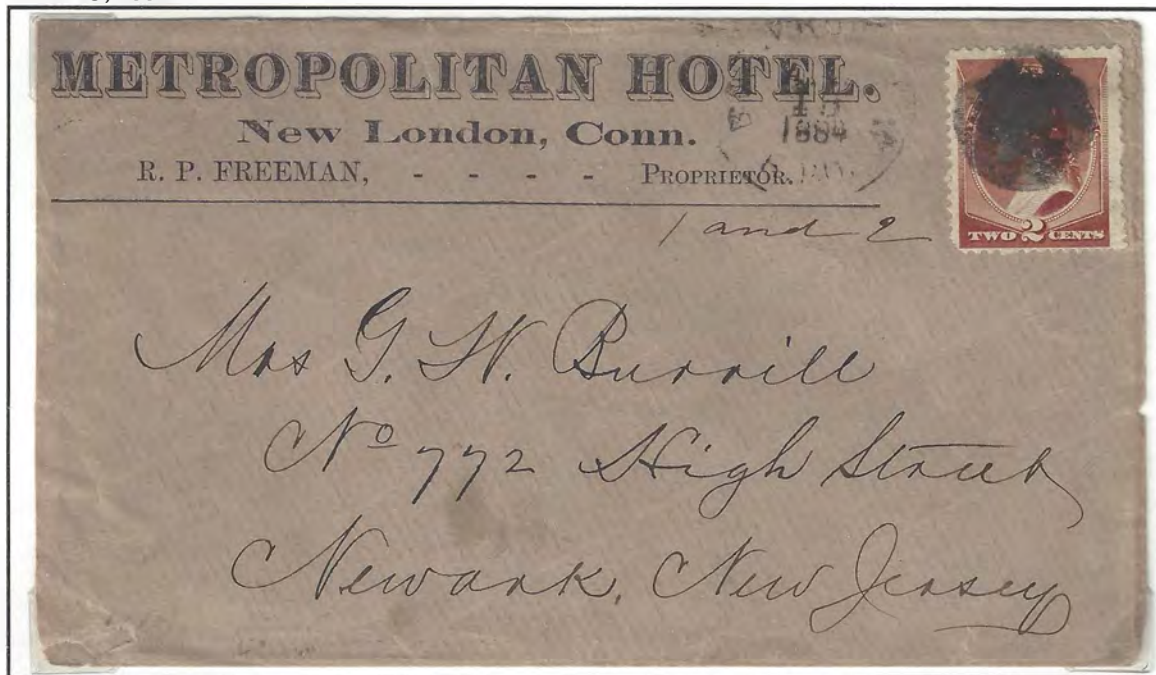 METROPOLITAN HOTEL.
New London, Conn.
R. P. FREEMAN, - - - - PROPRIETOR.
1884
TWO 2 CENTS
1 and 2
Mrs G. W. Burrill
No 772 High Street
Newark, New Jersey